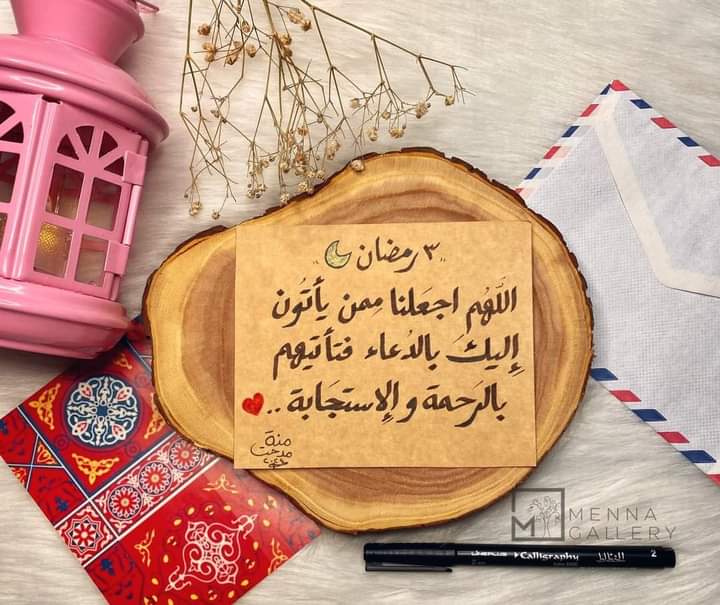 ٣ رمضان
اللَّهُم اجعَلنا مِمن يأتُون
إِليكَ بالدُعاء فتأتيهم
بالرَحمة و الإستجَابة ..
منة
مدحت
MENNA
GALLERY
Calligraphy
2